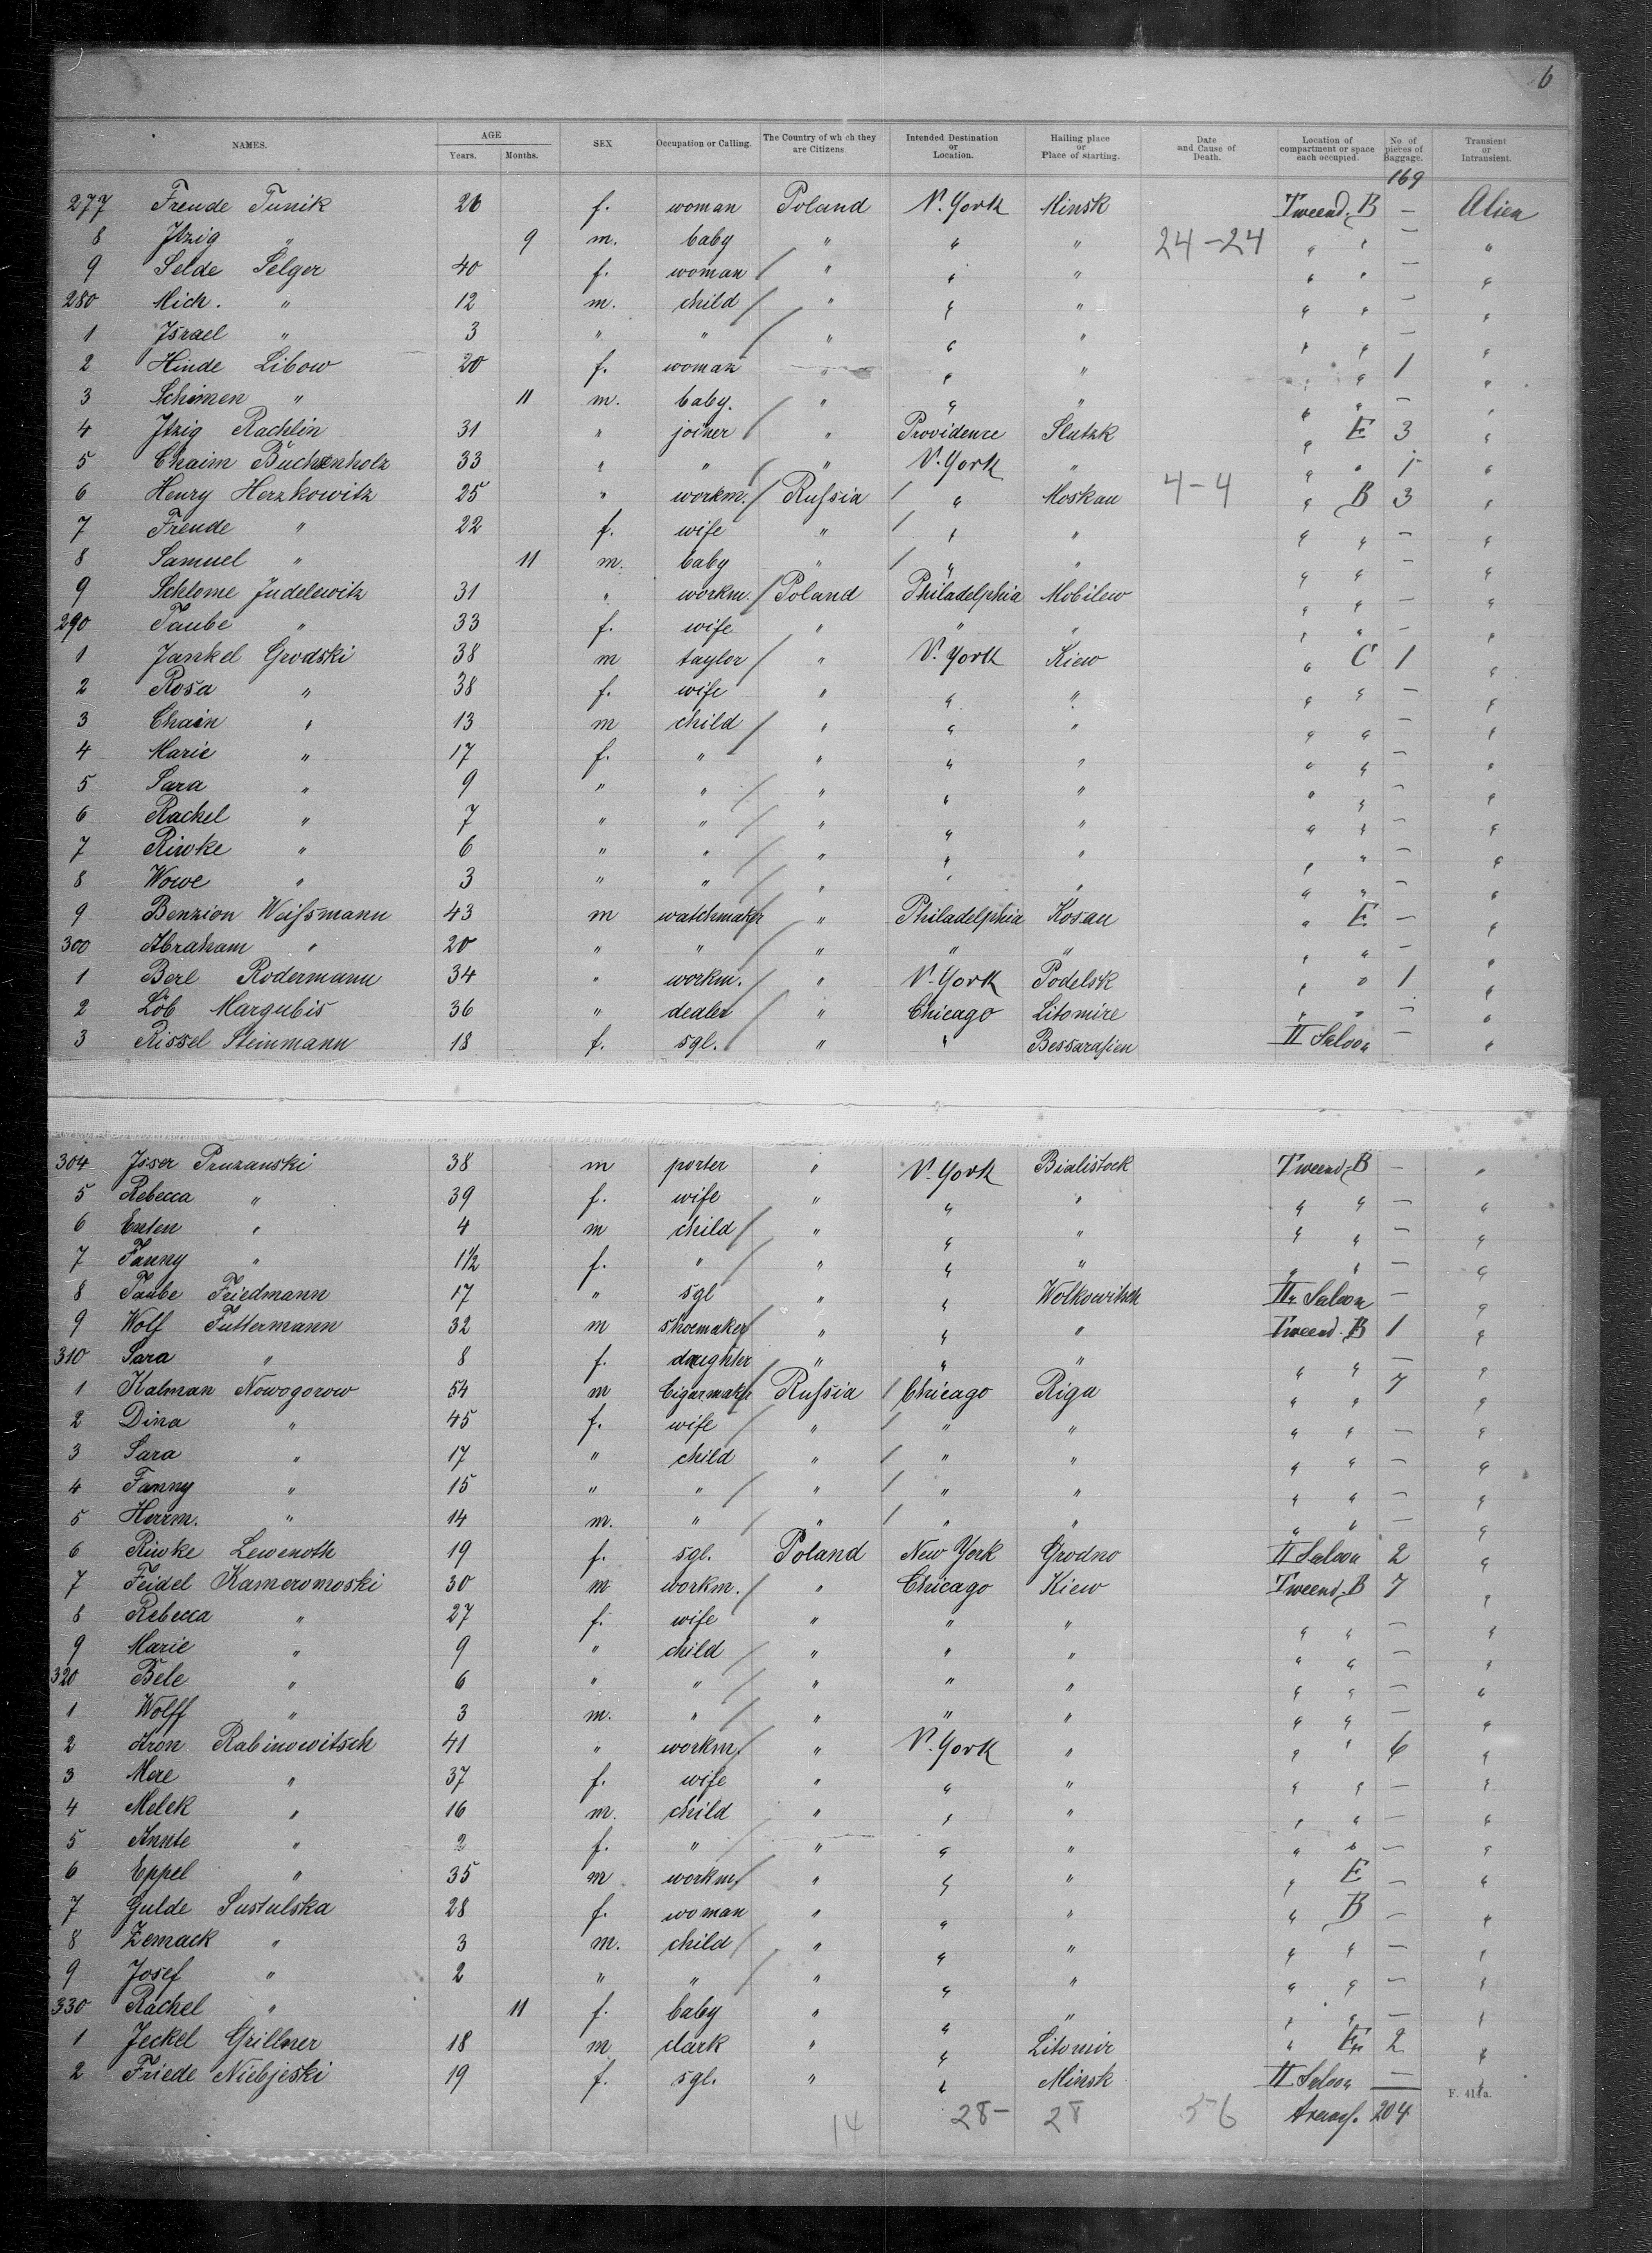 6
NAMES. AGE Years. Months. SEX Occupation or Calling. The Country of which they are Citizens. Intended Destination or Location. Hailing place or Place of starting. Date and Cause of Death. Location of compartment or space each occupied. No of pieces of Baggage. Transient or Intransient.
169
277 Freude Tunik 26 f. woman Poland N. York Minsk Tweend. B — Alien
8 Itzig " 9 m. baby " " " 24-24 " " — "
9 Selde Selger 40 f. woman " " " " " — "
280 Mich. " 12 m. child " " " " " — "
1 Israel " 3 " " " " " " " — "
2 Hinde Libow 20 f. woman " " " " " 1 "
3 Schimen " 11 m. baby. " " " " " — "
4 Itzig Rachlin 31 " joiner " Providence Slutzk " E 3 "
5 Chaim Buchenholz 33 " " " N. York " " " 1 "
6 Henry Herzkowitz 25 " workm. Russia " Moskau 4-4 " B 3 "
7 Freude " 22 f. wife " " " " " — "
8 Samuel " 11 m. baby " " " " " — "
9 Schlome Judelewitz 31 " workm. Poland Philadelphia Mobilew " " — "
290 Taube " 33 f. wife " " " " " — "
1 Jankel Grodski 38 m taylor " N. York Kiew " C 1 "
2 Rosa " 38 f. wife " " " " " — "
3 Chain " 13 m child " " " " " — "
4 Marie " 17 f. " " " " " " — "
5 Sara " 9 " " " " " " " — "
6 Rachel " 7 " " " " " " " — "
7 Riwke " 6 " " " " " " " — "
8 Wowe " 3 " " " " " " " — "
9 Benzion Weissmann 43 m watchmaker " Philadelphia Kosau " E — "
300 Abraham " 20 " " " " " " " — "
1 Berl Rodermann 34 " workm. " N. York Podelsk " " 1 "
2 Löb Margubis 36 " dealer " Chicago Litomire " " — "
3 Rissel Steinmann 18 f. sgl. " " Bessarasien II Saloon — "
304 Isser Pruzanski 38 m porter " N. York Bialistock Tweend. B — "
5 Rebecca " 39 f. wife " " " " " — "
6 Enten " 4 m child " " " " " — "
7 Fanny " 1 1/2 f. " " " " " " — "
8 Taube Friedmann 17 " sgl " " Wolkowitsch II Saloon — "
9 Wolf Futtermann 32 m shoemaker " " " Tweend. B 1 "
310 Sara " 8 f. daughter " " " " " — "
1 Kalman Nowogorow 54 m Cigarmaker Russia Chicago Riga " " 7 "
2 Dina " 45 f. wife " " " " " — "
3 Sara " 17 " child " " " " " — "
4 Fanny " 15 " " " " " " " — "
5 Herrm. " 14 m. " " " " " " — "
6 Riwke Lewenoth 19 f. sgl. Poland New York Grodno II Saloon 2 "
7 Feidel Kameromoski 30 m workm. " Chicago Kiew Tweend. B 7 "
8 Rebecca " 27 f. wife " " " " " — "
9 Marie " 9 " child " " " " " — "
320 Bele " 6 " " " " " " " — "
1 Wolff " 3 m. " " " " " " — "
2 Aron Rabinowitsch 41 " workm. " N. York " " " 6 "
3 Mere " 37 f. wife " " " " " — "
4 Melek " 16 m. child " " " " " — "
5 Annte " 2 f. " " " " " " — "
6 Eppel " 35 m workm. " " " " E — "
7 Gulde Sustulska 28 f. woman " " " " B — "
8 Zemack " 3 m. child " " " " " — "
9 Josef " 2 " " " " " " " — "
330 Rachel " 11 f. baby " " " " " — "
1 Jeckel Grillner 18 m clark " " Litomir " E 2 "
2 Friede Niebjeski 19 f. sgl. " " Minsk II Saloon — "
F. 411a.
14 28- 28 56 transf. 204